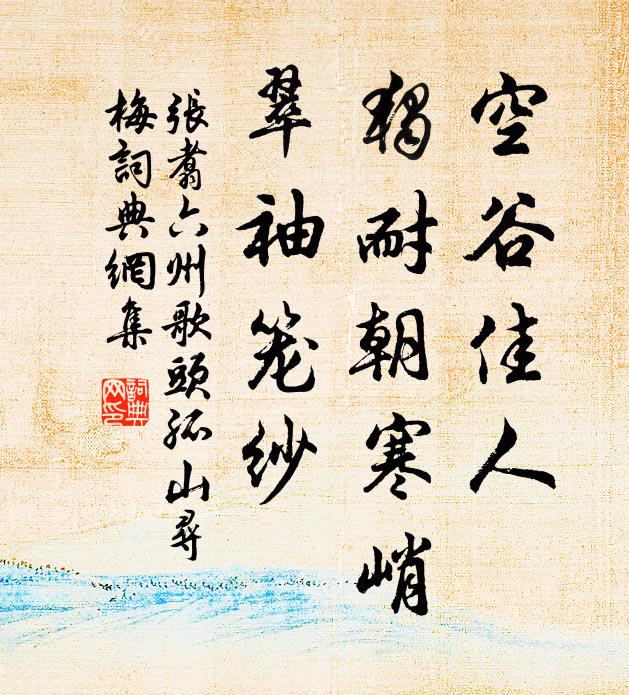 空谷佳人
獨耐朝寒峭
翠袖笼纱
張翥六州歌頭孤山尋
梅詞典網集
詞典
网印